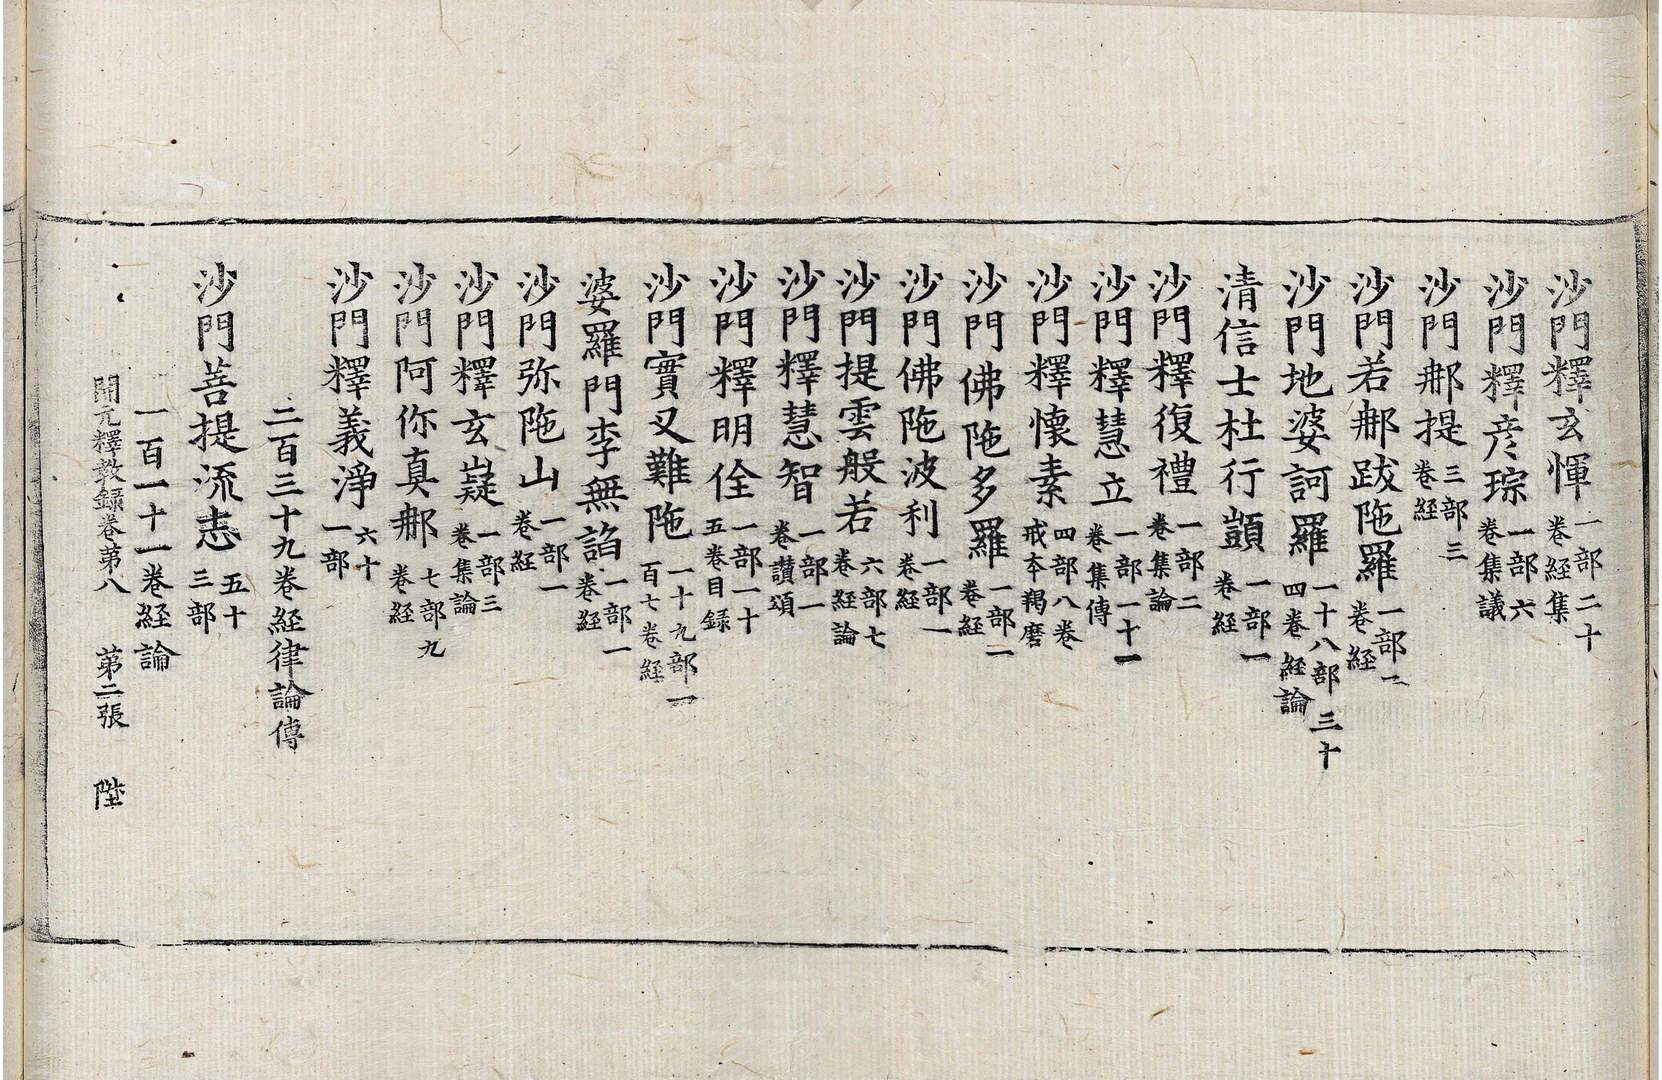 沙門釋玄惲一部二十卷經集
沙門釋彦琮一部六卷集議
沙門郍提三部三卷經
沙門若郍跋陁羅一部二卷経
沙門地婆訶羅一十八部三十四卷経論
清信士杜行顗一部一卷経
沙門釋復禮一部二卷集論
沙門釋慧立一部一十卷集傳
沙門釋懷素四部八卷戒夲羯磨
沙門佛陁多羅一部一卷経
沙門佛陁波利一部一卷経
沙門提雲般若六部七卷経論
沙門釋慧智一部一卷讃頌
沙門釋明佺一部一十五卷目録
沙門實叉難陁一十九部一百七卷経
婆羅門李無諂一部一卷経
沙門弥陁山一部一卷経
沙門釋玄嶷一部三卷集論
沙門阿你真郍七部九卷経
沙門釋義淨六十一部
二百三十九卷経律論傳
沙門菩提流志五十三部
一百一十一卷経論
開元釋教録卷第八　第二張　陛